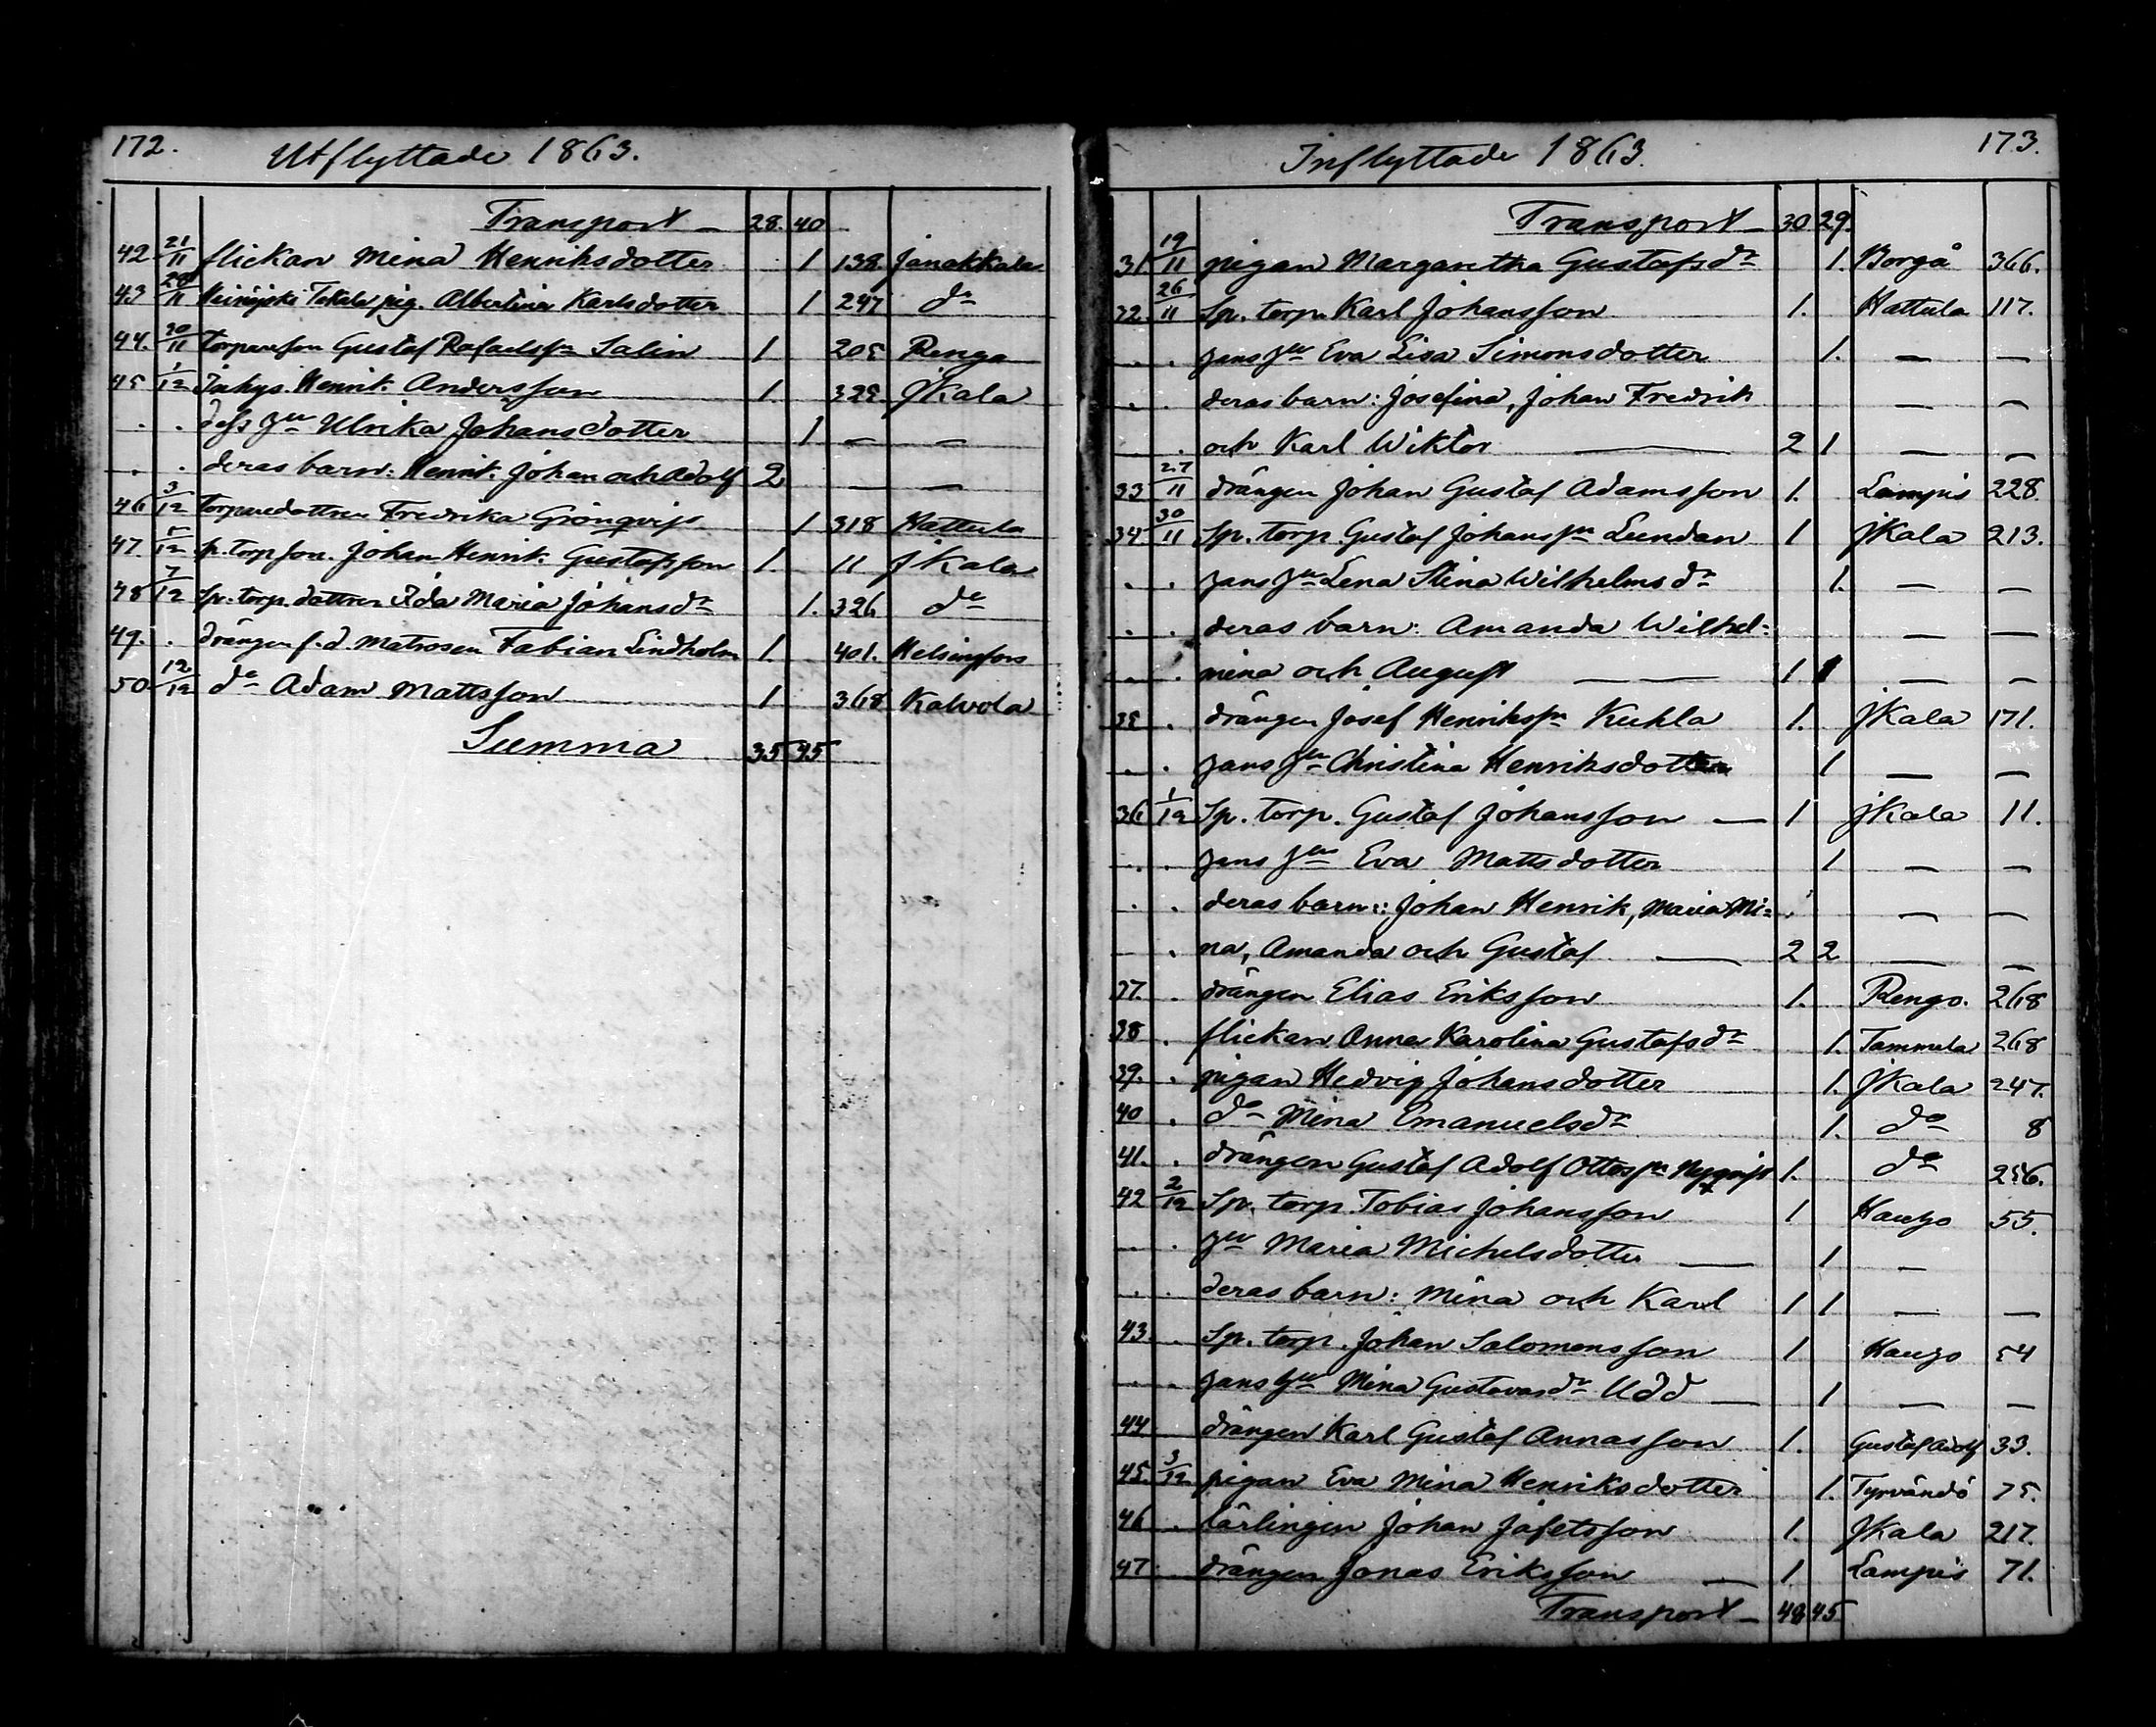 172. Utflyttade 1863.
Transport 28. 40
42 21/11 flickan Mina Henriksdotter 1 138 Janakkala
43 28/11 Tokala pig. Albertina Karlsdotter 1 247 do
44. 30/11 torpareson Gustaf Rafaelssn Salin 1 205 Rengo
45 1/12 Inhys. Henrik Andersson 1. 325 JKala
. . dess hu Ulrika Johansdotter 1 — —
. . deras barn: Henrik Johan och Adolf 2 — —
46 3/12 torparedottren Fredrika Grönqvist 1 318 Hattula
47 5/12 sp. torp son. Johan Henrik Gustafsson 1. 11 JKala
48 7/12 Sp. torp. dottren Ida Maria Johansdr 1. 326 do
49. . drängen f.d. Matrosen Fabian Lindholm 1. 401. Helsingfors
50 12/12 do Adam Mattsson 1 368 Kalvola
Summa 35 45
Inflyttade 1863. 173.
Transport 30 29.
31 19/11 pigan Margaretha Gustafsdr 1. Borgå 366.
32. 26/11 Sp. torp. Karl Johansson 1. Hattula 117.
. . hans hu Eva Lisa Simonsdotter 1. — —
. . deras barn: Josefina, Johan Fredrik — —
. . och Karl Wiktor — 2 1 — —
33 27/11 drängen Johan Gustaf Adamsson 1. Lampis 228
34 30/11 Sp. torp. Gustaf Johanssn Lundan 1 JKala 213.
. . hans hu Lena Stina Wilhelmsdr 1. — —
. . deras barn: Amanda Wilhel= — —
. . mina och August — — 1 1 — —
35 . drängen Josef Henrikssn Kuhla 1. JKala 171.
. . hans hu Christina Henriksdotter 1 — —
36 1/12 Sp. torp. Gustaf Johansson — 1 JKala 11.
. . hans hu Eva Mattsdotter 1 — —
. . deras barn: Johan Henrik, Maria Mi= — —
. . na, Amanda och Gustaf — 2 2 — —
37. . drängen Elias Eriksson 1. Rengo. 268
38 . flickan Anna Karolina Gustafsdr 1. Tammela 268
39. . pigan Hedvig Johansdotter 1. JKala 247.
40 . do Mina Emanuelsdr 1. do 8
41. . drängen Gustaf Adolf Ottossn Nyqvist 1. do 256.
42 2/12 Sp. torp. Tobias Johansson 1 Haujo 55.
. . hu Maria Michelsdotter — 1 —
. . deras barn: Mina och Karl 1 1 — —
43. . Sp. torp. Johan Salomonsson 1 Haujo 54
. . hans hu Mina Gustavasdr Udd — 1 — —
44 drängen Karl Gustaf Annasson 1. Gustaf Adolf 33.
45. 3/12 pigan Eva Mina Henriksdotter 1. Tyrvändö 75.
46 . lärlingen Johan Jafetsson 1. JKala 217.
47. drängen Jonas Eriksson — 1. Lampis 71.
Transport — 48 45